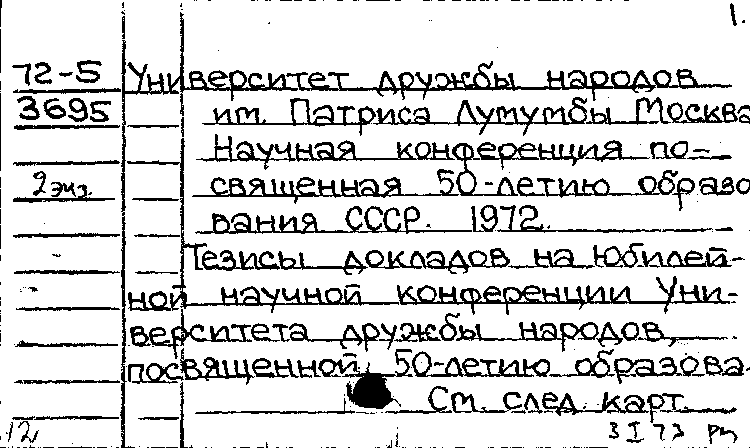 1.
72-5 Университет дружбы народов
3695 им. Патриса Лумумбы Москва
Научная конференция по-
2 экз. священная 50-летию образо
вания СССР. 1972.
Тезисы докладов на юбилей-
ной научной конференции Уни-
верситета дружбы народов,
посвященной 50-летию образова
См. след. карт.
12 3 I 73